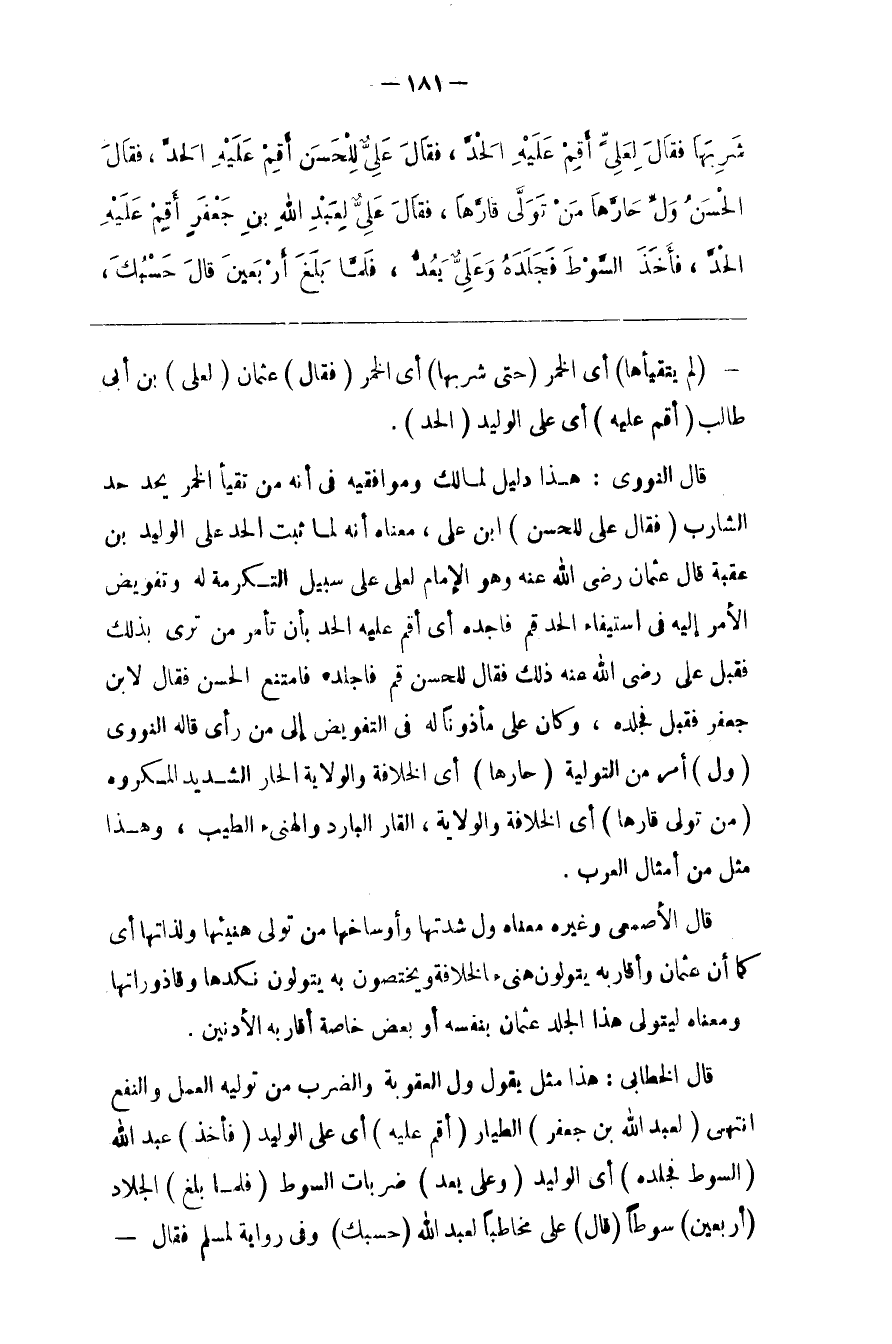 — ١٨١ —
شَرِبَهَا فَقَالَ لِعَلِيٍّ أَقِمْ عَلَيْهِ الْحَدَّ ، فَقَالَ عَلِيٌّ لِلْحَسَنِ أَقِمْ عَلَيْهِ الْحَدَّ ، فَقَالَ
الْحَسَنُ وَلِّ حَارَّهَا مَنْ تَوَلَّى قَارَّهَا ، فَقَالَ عَلِيٌّ لِعَبْدِ اللهِ بنِ جَعْفَرٍ أَقِمْ عَلَيْهِ
الْحَدَّ ، فَأَخَذَ السَّوْطَ فَجَلَدَهُ وَعَلِيٌّ يَعُدُّ ، فَلَمَّا بَلَغَ أَرْبَعِينَ قالَ حَسْبُكَ ،
— (لم يتقيأها) أى الخمر (حتى شربها) أى الخمر ( فقال ) عثمان ( لعلى ) بن أبى
طالب ( أقم عليه ) أى على الوليد ( الحد ) .
قال النووى : هذا دليل لمالك وموافقيه فى أنه من تقيأ الخمر يحد حد
الشارب ( فقال على للحسن ) ابن على ، معناه أنه لما ثبت الحد على الوليد بن
عقبة قال عثمان رضى الله عنه وهو الإمام لعلى على سبيل التكرمة له وتفويض
الأمر إليه فى استيفاء الحد قم فاجلده أى أقم عليه الحد بأن تأمر من ترى بذلك
فقبل على رضى الله عنه ذلك فقال للحسن قم فاجلده فامتنع الحسن فقال لابن
جعفر فقبل فجلده ، وكان على مأذوناً له فى التفويض إلى من رأى قاله النووى
( ول ) أمر من التولية ( حارها ) أى الخلافة والولاية الحار الشديد المكروه
( من تولى قارها ) أى الخلافة والولاية ، القار البارد والهنىء الطيب ، وهذا
مثل من أمثال العرب .
قال الأصمعى وغيره معناه ول شدتها وأوساخها من تولى هنيئها ولذاتها أى
كما أن عثمان وأقاربه يتولون هنىء الخلافة ويختصون به يتولون نكدها وقاذوراتها
ومعناه ليتولى هذا الجلد عثمان بنفسه أو بعض خاصة أقاربه الأدنين .
قال الخطابى : هذا مثل يقول ول العقوبة والضرب من توليه العمل والنفع
انتهى ( لعبد الله بن جعفر ) الطيار ( أقم عليه ) أى على الوليد ( فأخذ ) عبد الله
( السوط فجلده ) أى الوليد ( وعلى يعد ) ضربات السوط ( فلما بلغ ) الجلاد
(أربعين) سوطاً (قال) على مخاطباً لعبد الله (حسبك) وفى رواية لمسلم فقال —